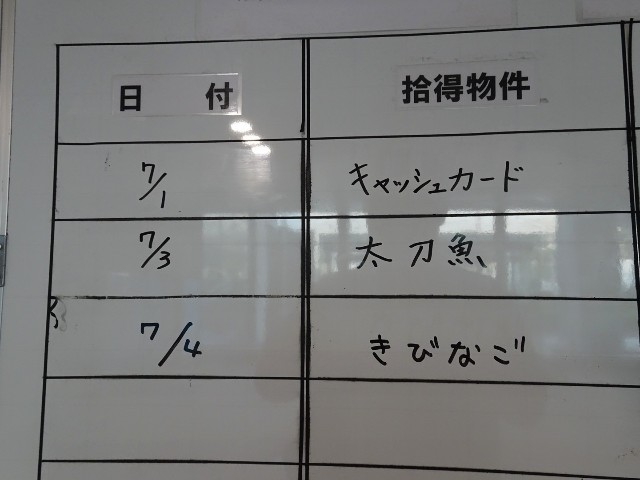 日 付 拾得物件
7/1 キャッシュカード
7/3 太刀魚
7/4 きびなご